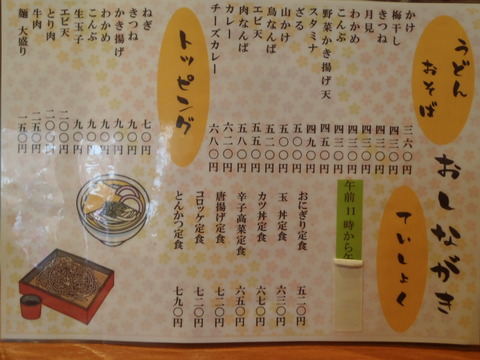 おしながき
うどん
おそば
かけ 三六〇円
梅干し 四三〇円
きつね 四三〇円
月見 四三〇円
わかめ 四三〇円
こんぶ 四三〇円
野菜かき揚げ天 四五〇円
スタミナ 四九〇円
ざる 五〇〇円
山かけ 五〇〇円
鳥なんば 五二〇円
エビ天 五五〇円
肉なんば 五八〇円
カレー 六二〇円
チーズカレー 六八〇円
トッピング
ねぎ 七〇円
きつね 九〇円
かき揚げ 九〇円
わかめ 九〇円
こんぶ 九〇円
生玉子 九〇円
エビ天 二〇〇円
とり肉 二〇〇円
牛肉 二五〇円
麺 大盛り 一五〇円
ていしょく
午前11時から午
おにぎり定食 五二〇円
玉 丼定食 六三〇円
カツ丼定食 六七〇円
辛子高菜定食 六五〇円
唐揚げ定食 七二〇円
コロッケ定食 七二〇円
とんかつ定食 七九〇円